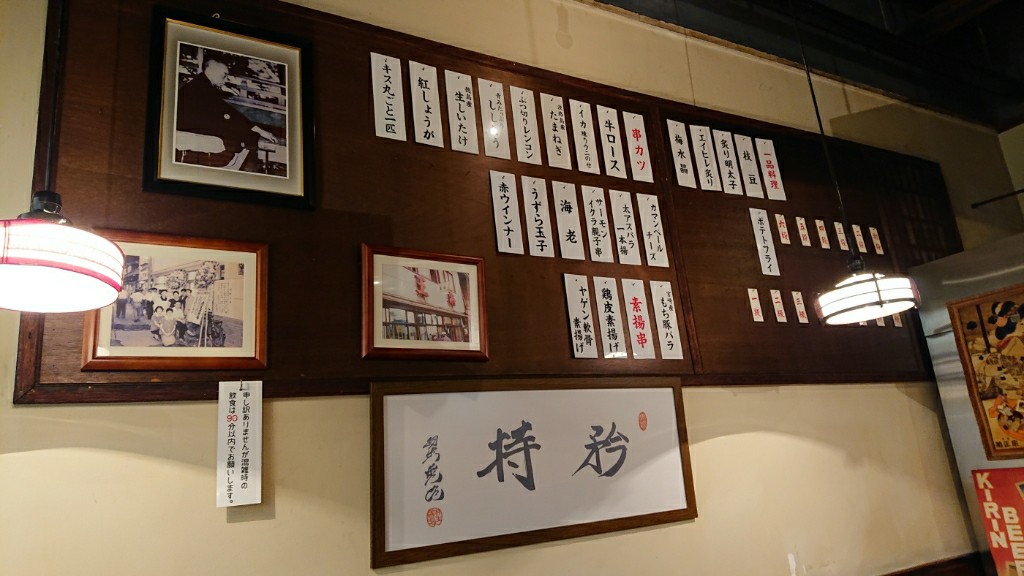 串カツ
牛ロース
たまねぎ
ぶつ切りレンコン
ししとう
生しいたけ
紅しょうが
キス丸ごと一匹
カマンベールチーズ
太アスパラ一本揚
サーモンイクラ親子串
海老
うずら玉子
赤ウインナー
もち豚バラ
素揚串
鶏皮素揚げ
ヤゲン軟骨素揚げ
一品料理
枝豆
炙り明太子
エイヒレ炙り
梅水晶
ポテトフライ
申し訳ありませんが混雑時の
飲食は90分以内でお願いします。
矜持
KIRIN
BEER